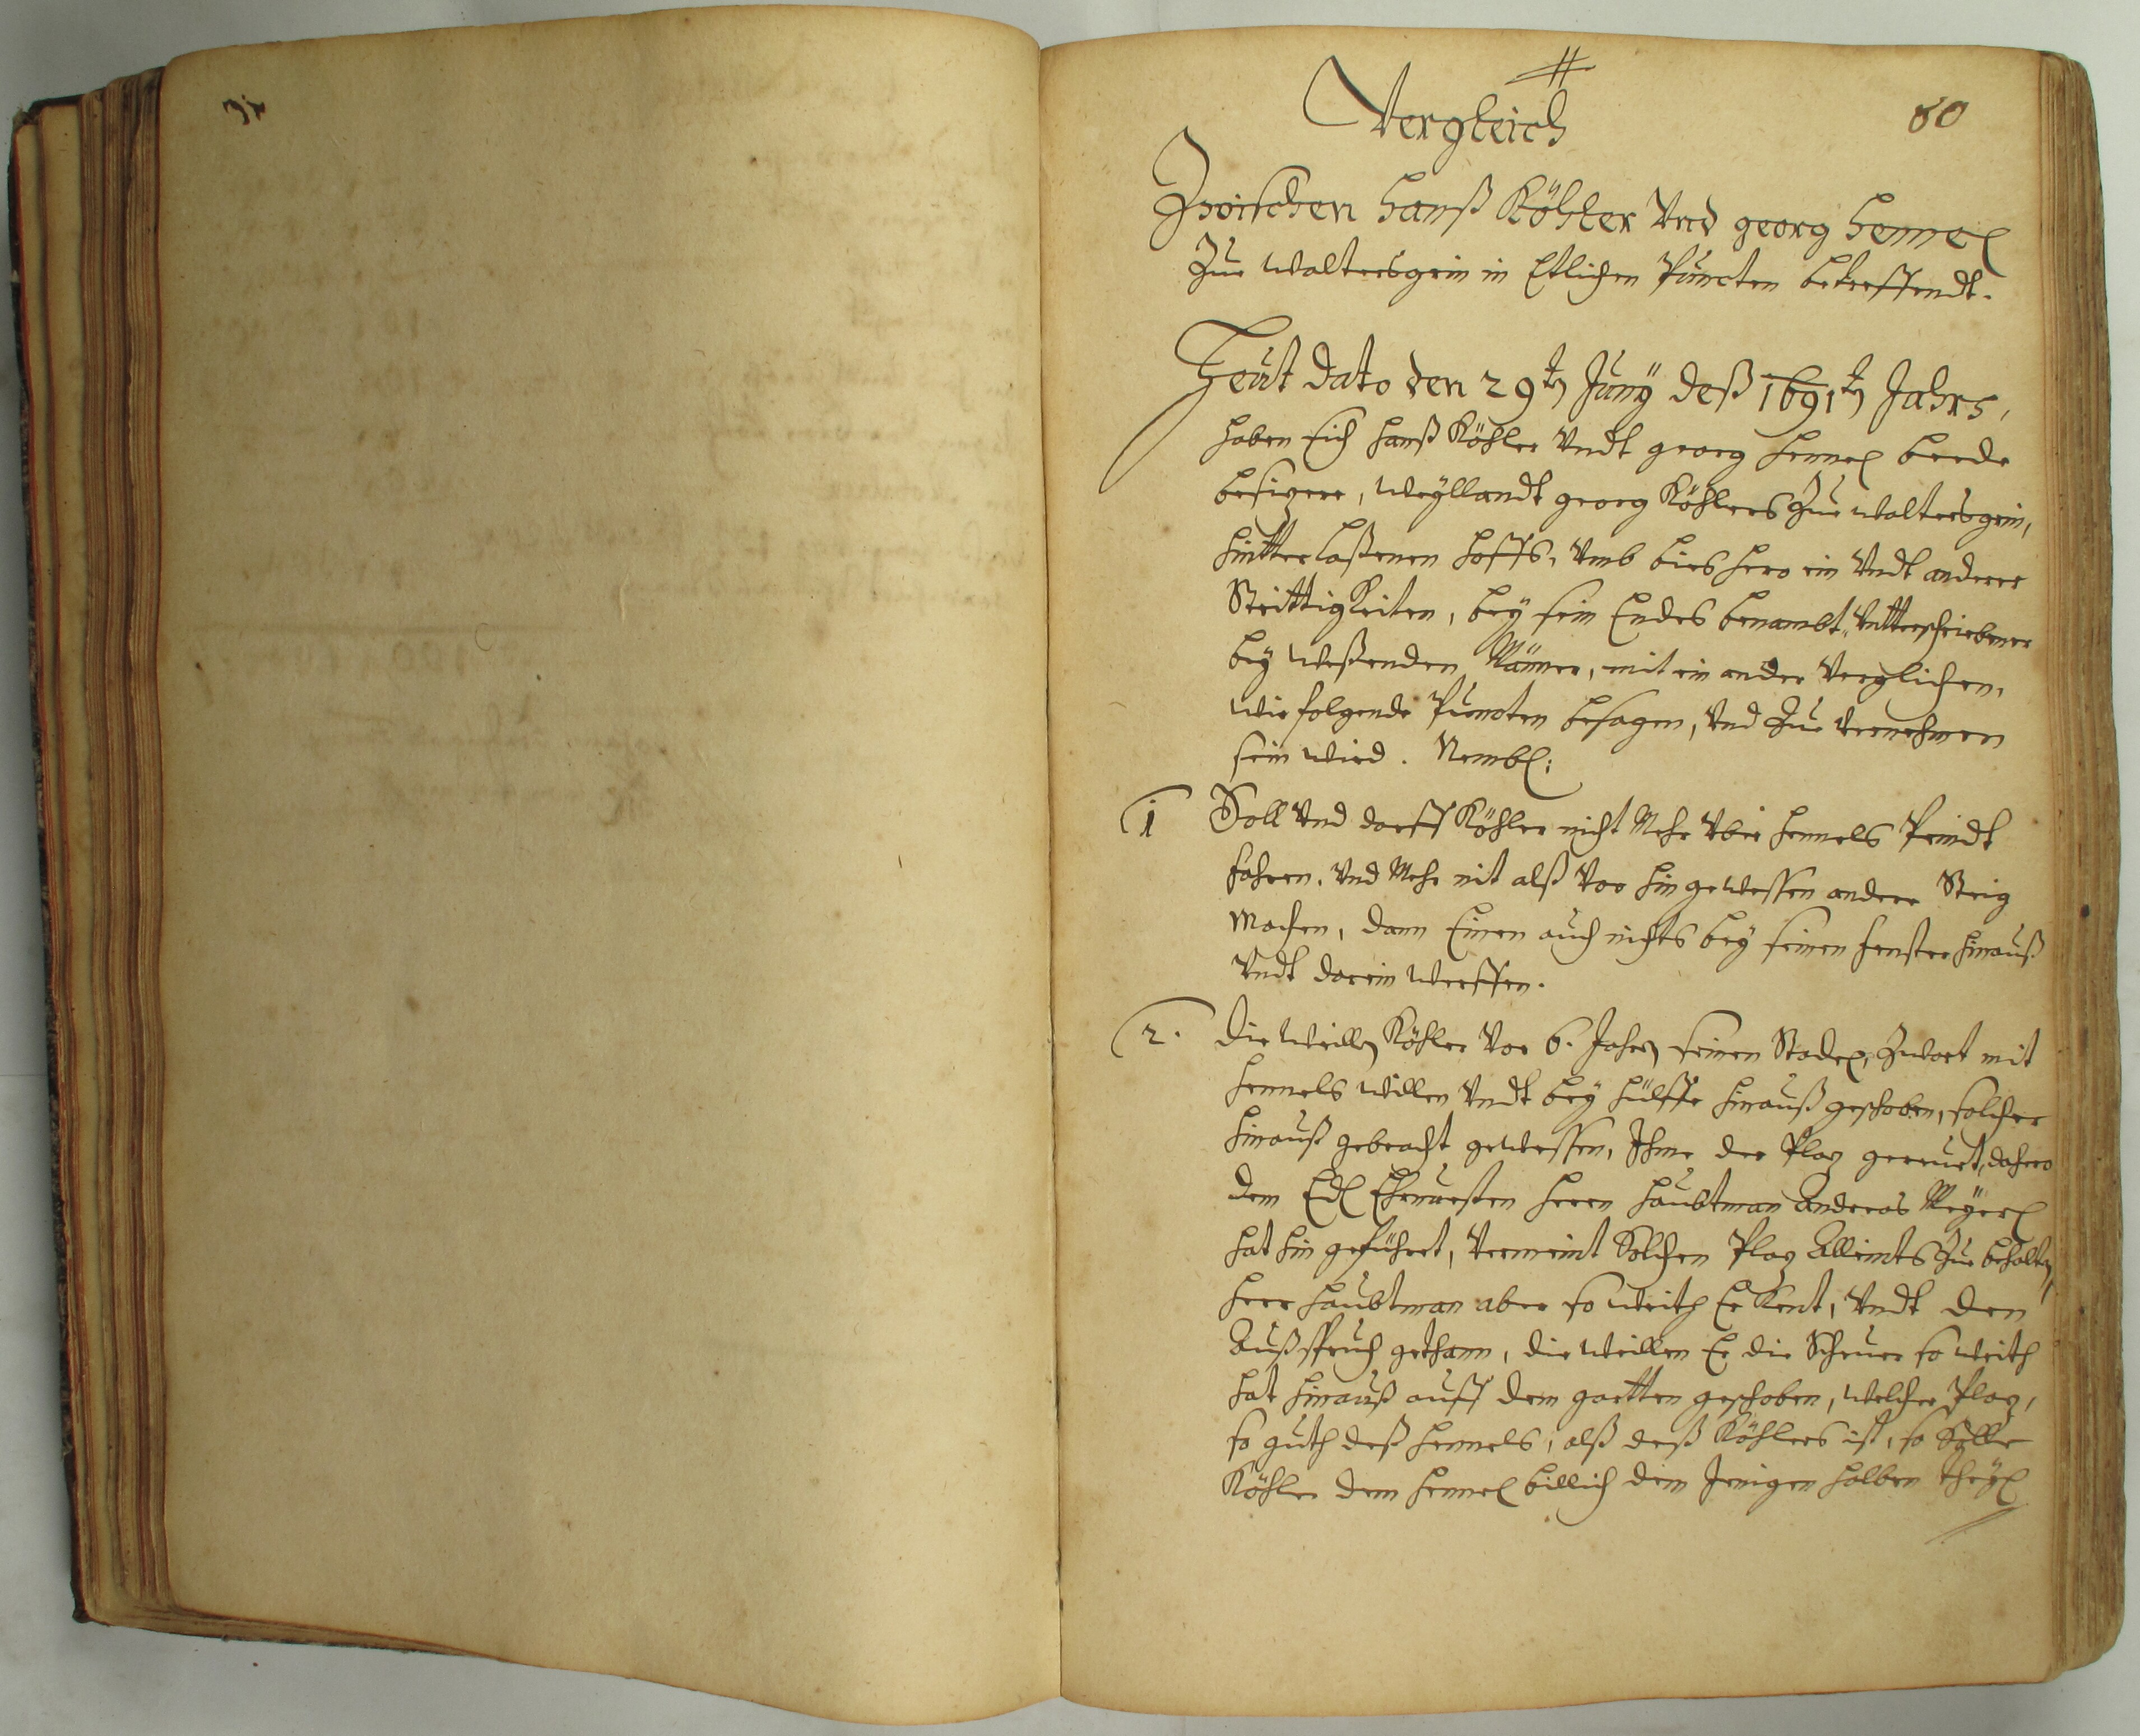 80
Vergleich
Zwischen Hanß Köhler Vnd georg Hennel
Zue Waltersgrin in Etlichen Puncten betreffendt.
Heut dato den 29tn Juny deß 1691tn Jahrs,
haben sich Hanß Köhler Vndt georg Hennel beede
besizere, weyllandt georg Köhlers Zue Waltersgrin,
hintterlaßenen Hoffs, Vmb bies hero ein Vndt anderer
Strittigkeiten, bey sein Endes benambt, Vntterschriebener
bey weßenden Männer, mit ein ander Verglichen,
wie folgende Puncten besagen, Vnd Zue Vernehmen
sein wird. Nembl:
1 Soll Vnd darff Köhler nicht Mehr Vber Hennels Peindt
fahren, Vnd Mehr nit alß Vor hin gewessen andere Steig
Machen, dann Einen auch nichts bey seinen fenster hinauß
Vndt darein werffen.
2. Die weilln Köhler Vor 6. Jahrn seinen Stadel, Zwart mit
Hennels willen Vndt bey hülffe hinauß geschoben, solcher
hinauß gebracht gewessen, Ihme der Plaz gereuet, dahero
dem Edl Ehrnuesten Herrn Haubtman Andreas Meyerl
hat hin geführet, Vermeint Solchen Plaz Alleints Zue behaltn,
Herr Haubtman aber so weith Er Kent, Vndt den
Außspruch gethann, die weillen Er die Scheuer so weith
hat hinauß auff dem gartten geschoben, welcher Plaz,
so guth deß Hennels, alß deß Köhlers ist, so Solle
Köhler dem Hennel billich dem Jenigen halben theyl